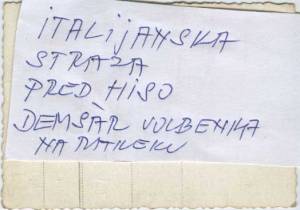 iTALijANSKA
STRAZA
PRED HISO
DEMŠAR VOLBENKA
NA RAKEKU